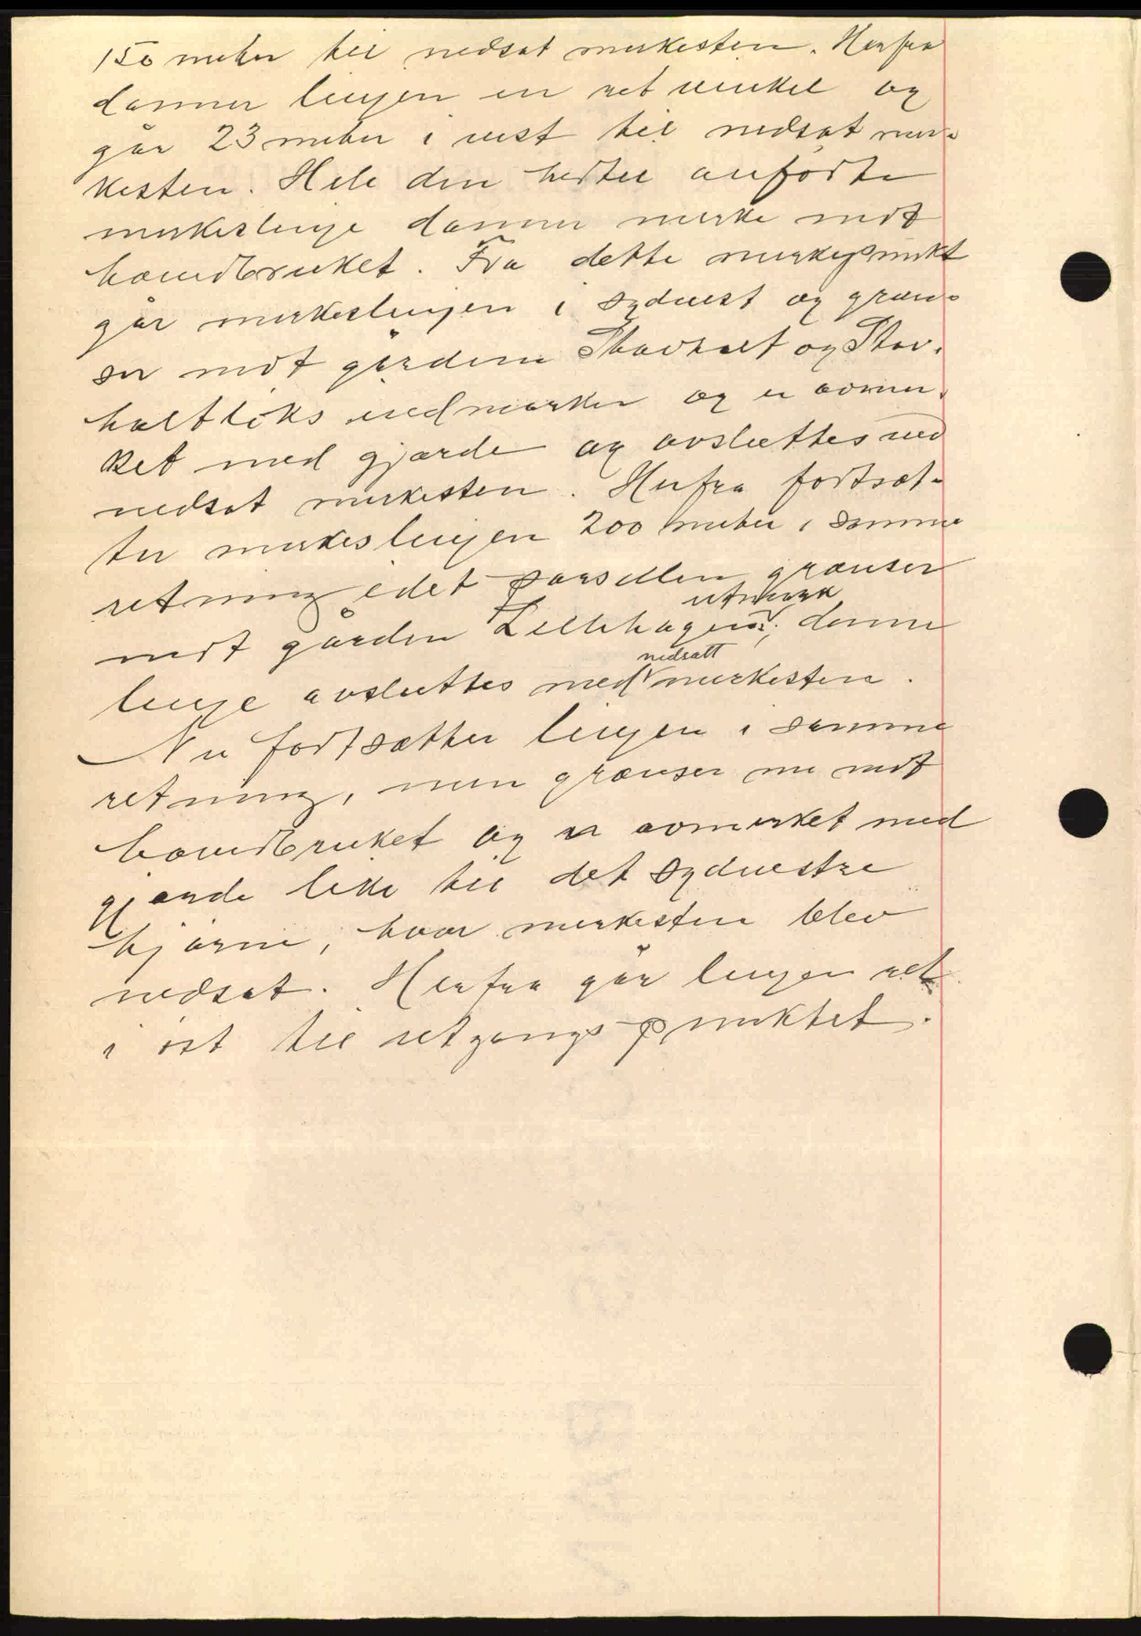 150 meter til nedsat merkesten. Herfra
danner linjen en ret vinkel og
går 23 meter i vest til nedsat mer-
kesten. Hele den hertil anførte
merkeslinje danner merke mot
hovedbruket. Fra dette merkepunkt
går merkeslinjen i sydvest og græn-
ser mot gårdene Stavholt og Stav-
holtløks utmarker og er avmer-
ket med gjærde og avsluttes ved
nedsat merkesten. Herfra fortsæt-
ter merkeslinjen 200 meter i samme
retning idet parsellen grænser
utmark
mot gården Lillehagens; denne
nedsatt
linje avsluttes med merkesten.
Nu fortsætter linjen i samme
retning, men grænser nu mot
hovedbruket og er avmerket med
gjærde like til det sydvestre
hjørne, hvor merkesten blev
nedsat. Herfra går linjen ret
i øst til utgangspunktet.